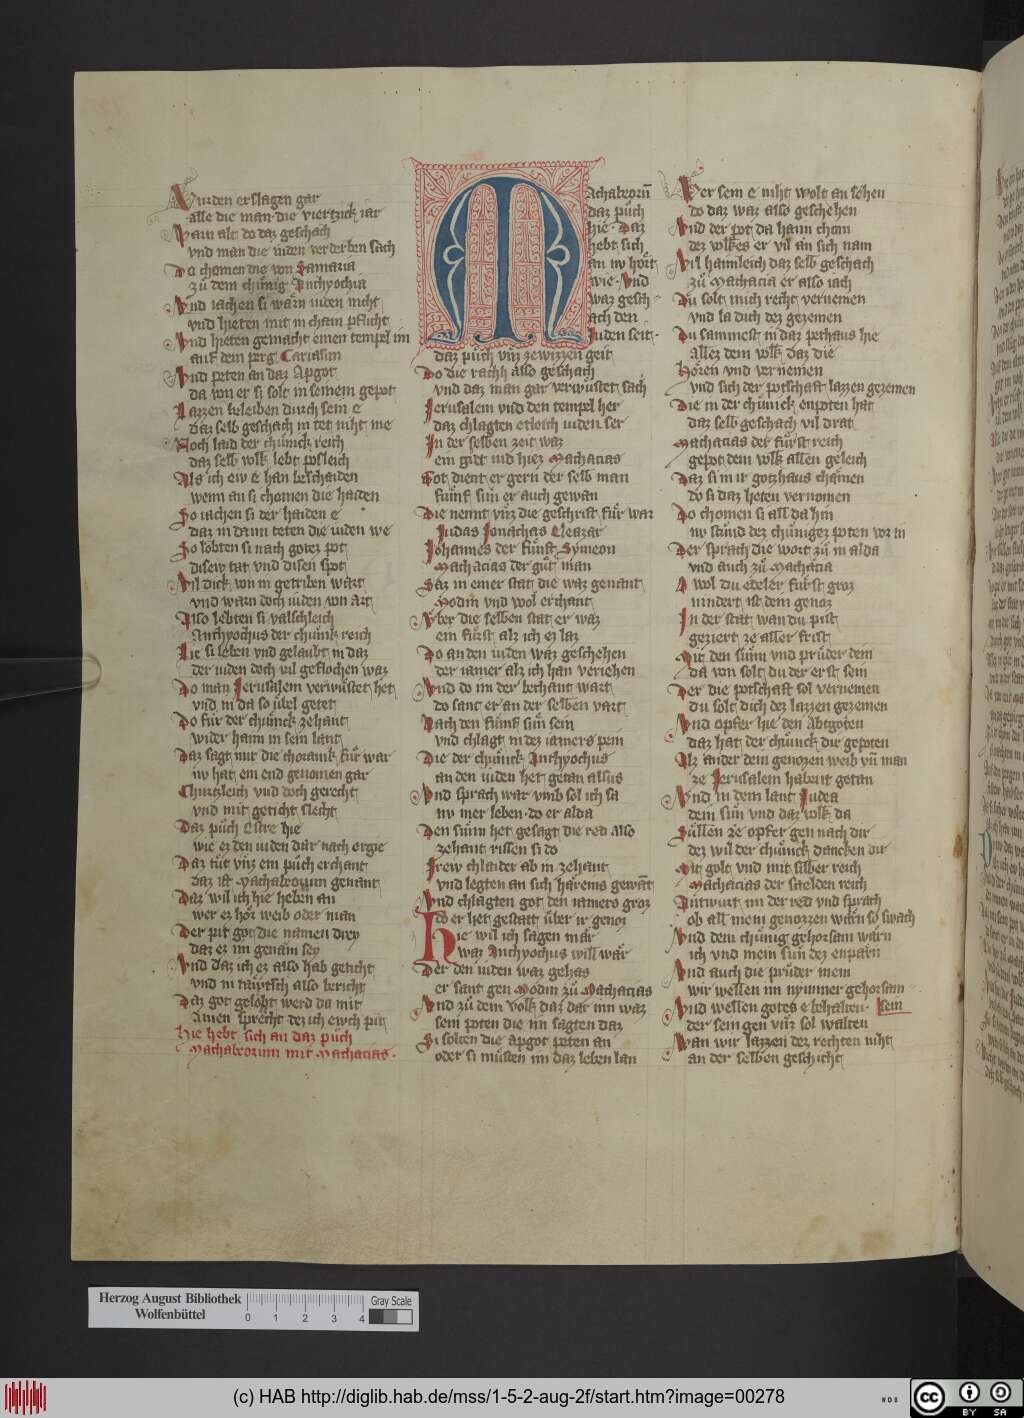 Wurden erslagen gar
alle die man die viertzick iar
Warn alt do daz geschach
vnd man die iuden verderben sach
Do chomen die von Samaria
zů dem chůnig Anthyochia
Vnd iachen si warn iuden nicht
vnd hieten mit in chain pflicht
Vnd hieten gemacht einen tempel im
auf dem perg Cariasim
Vnd peten an daz Apgot
da von er si solt in seinem gepot
Lazzen beleiben durch sein e
daz selb geschach in tet niht me
Noch laid der chůnick reich
daz selb volk lebt posleich
Als ich ew e han beschaiden
wenn an si chomen die haiden
So iachen si der haiden e
daz in dann teten die iuden we
So lobten si nach gotez pot
disew tat vnd disen spot
Vil dick von in getriben wart
vnd warn doch iuden von art
Also lebten si valschleich
Anthyochus der chůnik reich
Lie si leben vnd gelaubt in daz
der iuden doch vil geflochen waz
Do man Jerusalem verwůstet het
vnd in da so ůbel getet
Do fur der chůnick zehant
wider haim in sein lant
Daz sagt mir die choranik fůr war
nv hat ein end genomen gar
Churtzleich vnd doch gerecht
vnd mit geticht slecht
Daz půch Estre hie
wie ez den iuden dar nach ergie
Daz tůt vnz ein půch erchant
daz ist Machabeorum genant
Daz wil ich hie heben an
wer ez hôr weib oder man
Der pit got die namen drey
daz ez im genam sey
Vnd daz ich ez also hab geticht
vnd in tawtsch also bericht
Daz got gelobt werd da mit
Amen sprecht dez ich ewch pit
Hie hebt sich an daz půch
Machabeorum mit Machacias
Machabeorū
daz půch
hie · Daz
hebt sich
an nv hôrt
wie · vnd
waz gesch
ach den
Juden seit
daz půch vnz zewizzen geit
Do die rachh also geschach
vnd daz man gar verwůstet sach
Jerusalem vnd den tempel her
daz chlagten etleich iuden ser
In der selben zeit waz
ein gůt iud hiez Machacias
Got dient er gern der selb man
fůnf sůn er auch gewan
Die nennt vnz die geschrift fůr war
Judas Jonathas Eleazar
Johannes der fůnft Symeon
Machacias der gůt man
Saz in einer stat die waz genant
Modin vnd wol erchant
Vber die selben stat er waz
ein fůrst alz ich ez laz
Do an den iuden waz geschehen
der iamer alz ich han veriehen
Vnd do im der bechant wart
do sant er an der selben vart
Nach den fůnf sůn sein
vnd chlagt in dez iamers pein
Die der chůnick Anthyochus
an den iuden het getan alsus
Vnd sprach war vmb sol ich sa
nv mer leben do er alda
Den sůnn het gesagt die red also
zehant rissen si do
Irew chlaider ab in zehant
vnd legten an sich hareins gewāt
Vnd chlagten got den iamers groz
do er het gestatt ůber ir genoz
Hie wil ich sagen mår
waz Anthyochus will wår
Der den iuden waz gehas
er sant gen Modin zů Machacias
Vnd zů dem volk daz dar inn waz
sein poten die im sagten daz
Si solten die apgot peten an
oder si můsten im daz leben lan
Wer sein e niht wolt an sehen
do daz waz also geschehen
Vnd der pot da haim chom
dez volkes er vil an sich nam
Vil haimleich daz selb geschach
zů Machacia er also iach
Du solt mich recht vernemen
vnd la dich dez gezemen
Du sammest in daz pethaus hie
Allez dem volk daz die
Horen vnd vernemen
vnd sich der potschaft lazzen gezemen
Die in der chůnick enpoten hat
daz selb geschach vil drat
Machacias der fůrst reich
gepot dem volk allen geleich
Daz si in ir gotzhaus chåmen
do si daz heten vernomen
Do chomen si all da hin
nv stůnd dez chůnigez poten vor in
Der sprach die wort zů in alda
vnd auch zů Machacia
A wol du edeler fůrst groz
nindert ist dein genoz
In der stat wan du pist
geziert ze aller frist
Mit den sůnn vnd průder dein
da von solt du der erst sein
Der die potschaft sol vernemen
du solt dich dez lazzen gezemen
Vnd opfer hie den Abtgoten
daz hat der chůnick dir gepoten
Alz ander dein genozen weib vñ man
ze Jerusalem habent getan
Vnd in dem lant Judea
dein sůn vnd daz volk da
Sůllen ze opfer gen nach dir
dez wil der chůnick dancken dir
Mit golt vnd mit silber reich
Machacias der saelden reich
Antwurt im der red vnd sprach
ob all mein genozzen wårn so swach
Vnd dem chůnig gehorsam wårn
ich vnd mein sůn dez enparn
Vnd auch die průder mein
wir wellen im nymmer gehorsam sein
Vnd wellen gotes e behalten
der sein gen vnz sol walten
Wan wir lazzen dez rechten niht
an der selben geschicht
Herzog August Bibliothek
Wolfenbüttel
0 1 2 3 4
Gray Scale
(c) HAB http://diglib.hab.de/mss/1-5-2-aug-2f/start.htm?image=00278
WDB
CC BY SA